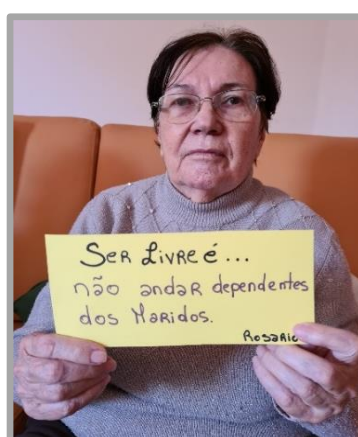 Ser Livre é...
não andar dependentes
dos Maridos.
Rosario